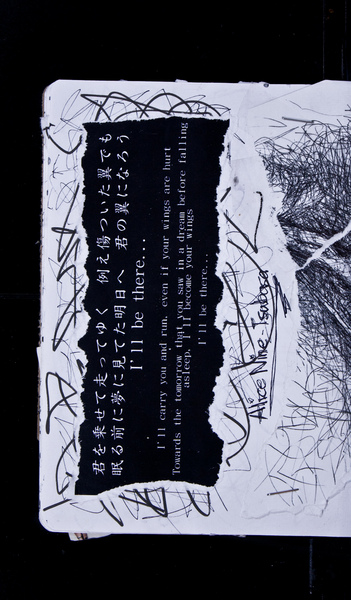 君を乗せて走ってゆく 例え傷ついた翼でも
眠る前に夢に見てた明日へ 君の翼になろう
I'll be there...
I'll carry you and run. even if your wings are hurt
Towards the tomorrow that you saw in a dream before falling
asleep, I'll become your wings
I'll be there...
Alice Nine. Tsubasa